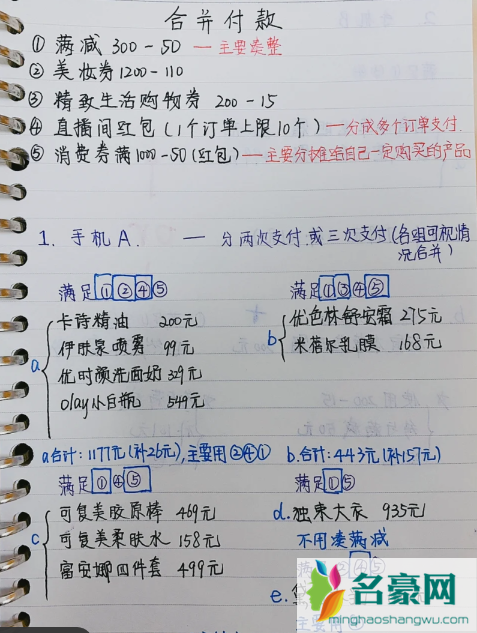 合并付款
① 满减 300-50 — 主要凑整
② 美妆券1200-110
③ 精致生活购物券 200-15
④ 直播间红包(1个订单上限10个) — 分成多个订单支付.
⑤ 消费券满1000-50(红包) — 主要分摊给自己一定购买的产品
1. 手机A. — 分两次支付.或三次支付(各组可视情况合并)
满足①②④⑤
a
卡诗精油 200元
伊肤泉喷雾 99元
优时颜洗面奶 329元
olay小白瓶 549元
满足①③④⑤
b
优色林舒安霜 275元
米蓓尔乳膜 168元
a合计:1177元(补26元),主要用②④①
b.合计:443元(补157元)
满足①④⑤
c
可复美胶原棒 469元
可复美柔肤水 158元
富安娜四件套 499元
满足①⑤
d.独束大衣 935元
不用凑满减
②④⑤
e.
名豪网
minghaoshangwu.com